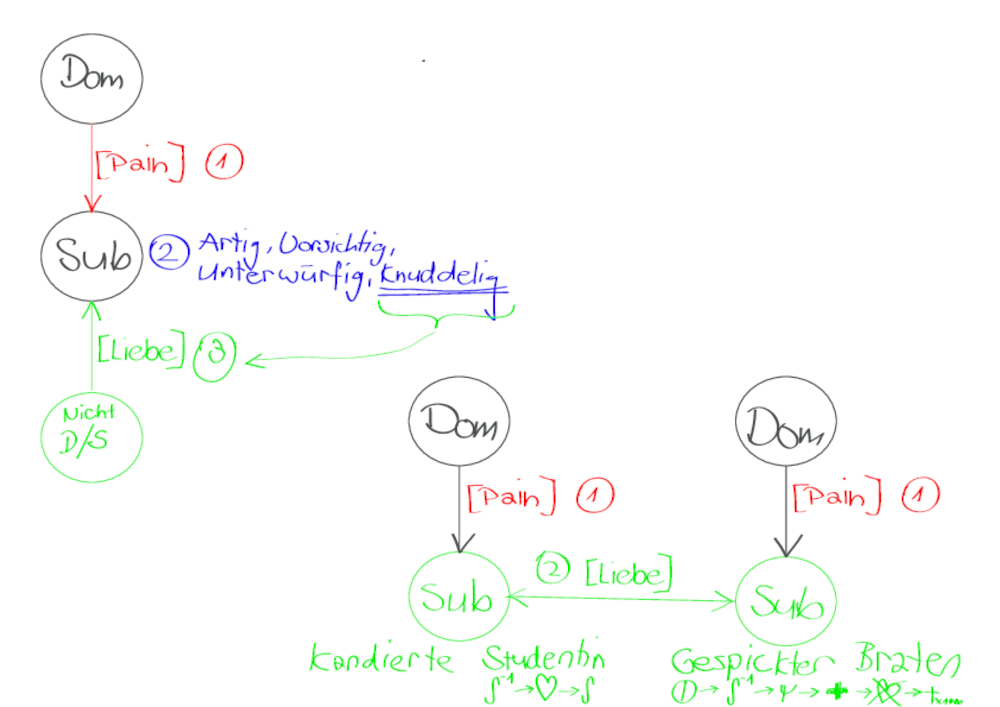 Dom
[Pain] 1
Sub
2 Artig, Vorsichtig,
Unterwürfig, Knuddelig
[Liebe] 3
Nicht
D/S
Dom
[Pain] 1
Sub
Dom
[Pain] 1
Sub
2 [Liebe]
Kandierte Studentin
∫⁻¹→♡→∫
Gespickter Braten